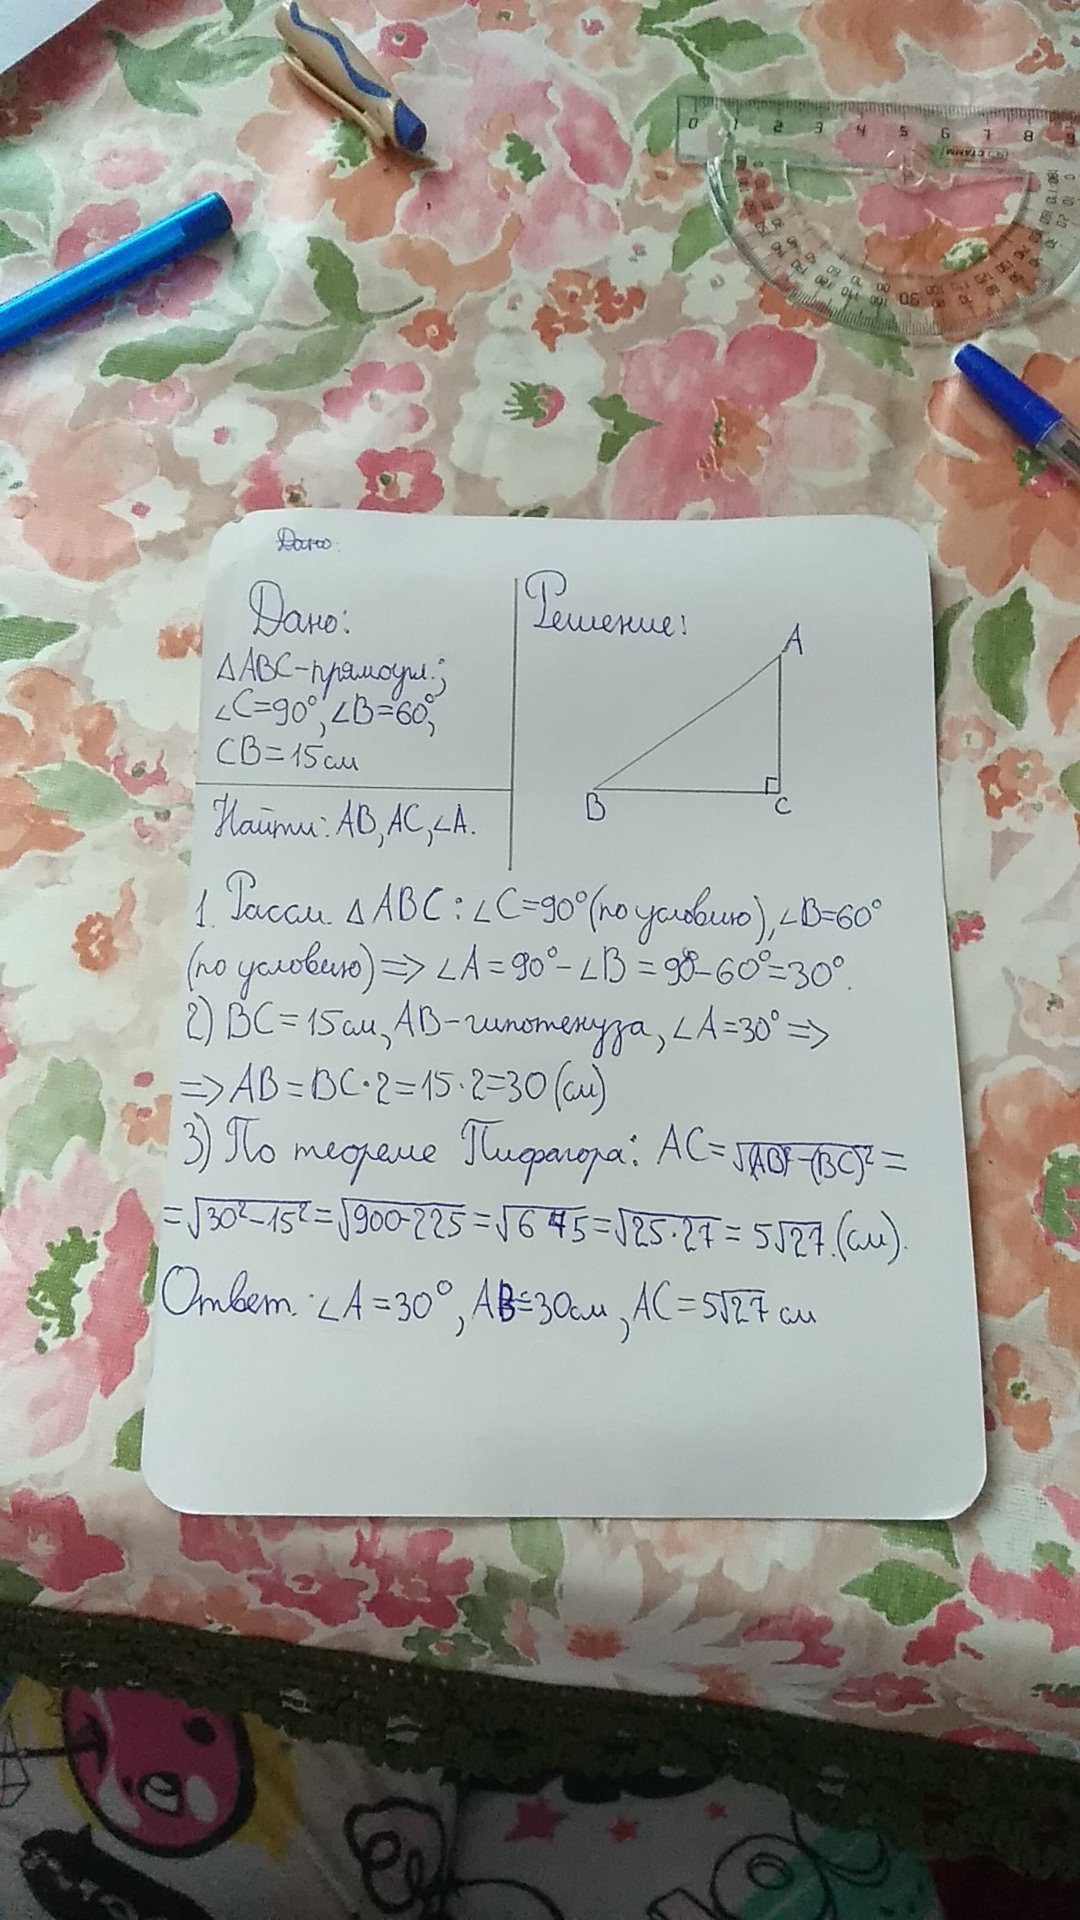 0 1 2 3 4 5 6 7 8 9
Дано:
Дано:
△ABC-прямоугл.;
∠C=90°, ∠B=60°,
CB=15см
Найти: AB, AC, ∠A.
Решение:
A
B
C
1. Рассм. △ABC: ∠C=90° (по условию), ∠B=60°
(по условию) => ∠A=90°-∠B=90°-60°=30°.
2) BC=15см, AB-гипотенуза, ∠A=30° =>
=> AB=BC·2=15·2=30(см)
3) По теореме Пифагора: AC=√(AB)²-(BC)²=
=√30²-15²=√900-225=√675=√25·27=5√27.(см).
Ответ: ∠A=30°, AB=30см, AC=5√27 см